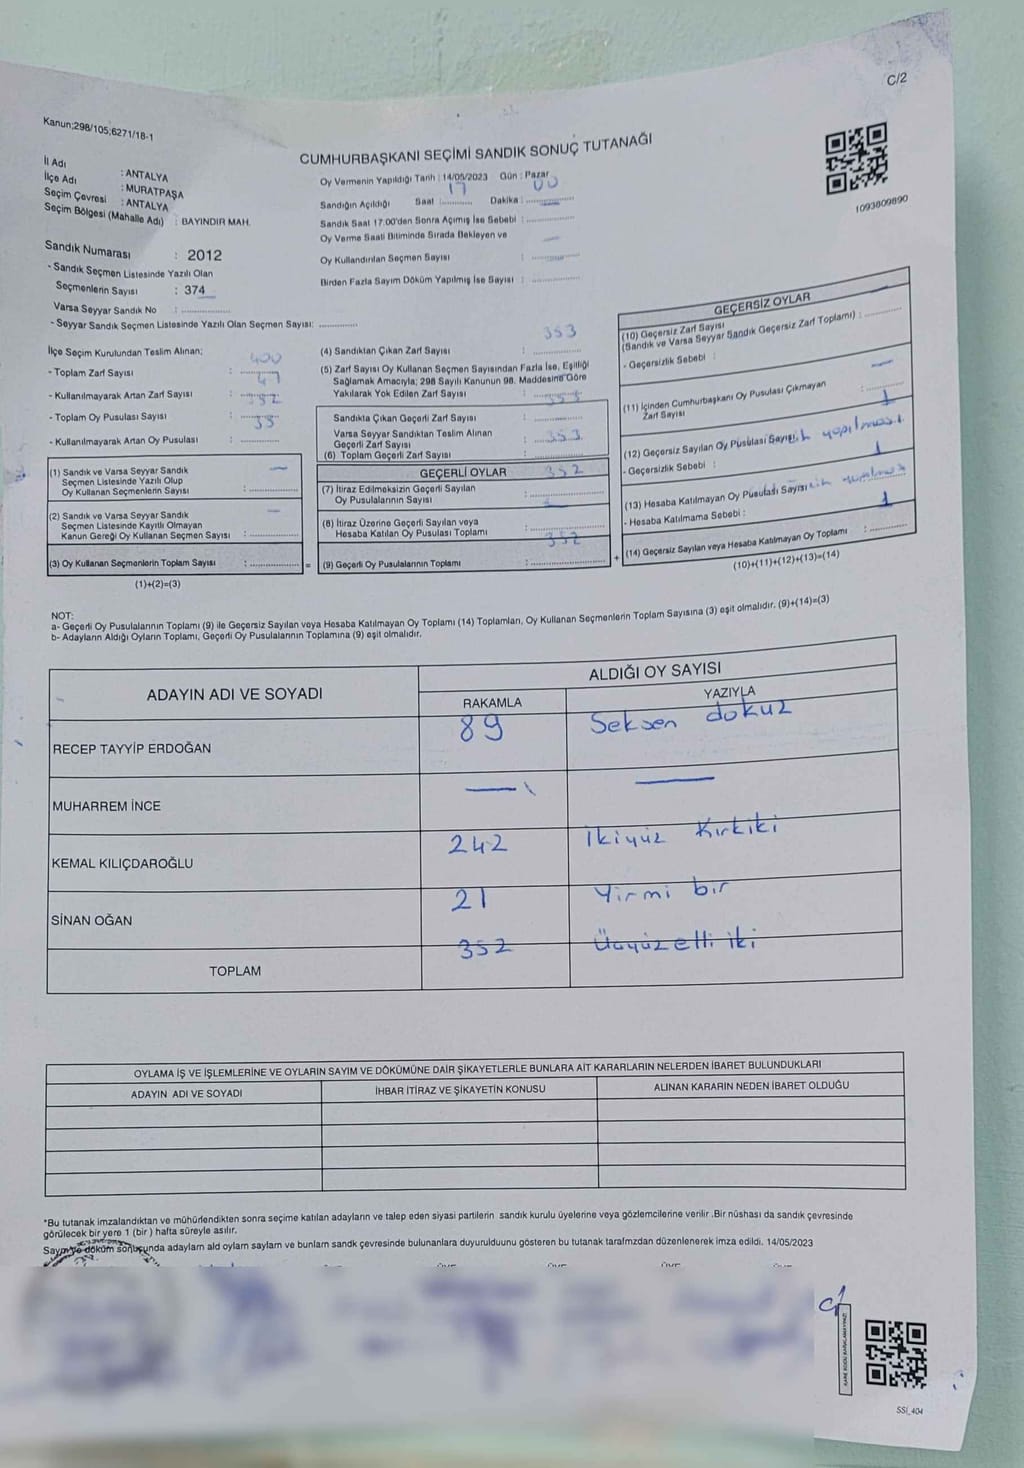 C/2
Kanun;298/105;6271/18-1
CUMHURBAŞKANI SEÇİMİ SANDIK SONUÇ TUTANAĞI
1093809890
İl Adı : ANTALYA
İlçe Adı : MURATPAŞA
Seçim Çevresi : ANTALYA
Seçim Bölgesi (Mahalle Adı) : BAYINDIR MAH.
Sandık Numarası : 2012
- Sandık Seçmen Listesinde Yazılı Olan
Seçmenlerin Sayısı : 374
Varsa Seyyar Sandık No :
- Seyyar Sandık Seçmen Listesinde Yazılı Olan Seçmen Sayısı:
Oy Vermenin Yapıldığı Tarih : 14/05/2023 Gün : Pazar
Sandığın Açıldığı Saat : 17 Dakika : 00
Sandık Saat 17.00'den Sonra Açımış İse Sebebi :
Oy Verme Saati Bitiminde Sırada Bekleyen ve
Oy Kullandırılan Seçmen Sayısı : —
Birden Fazla Sayım Döküm Yapılmış İse Sayısı :
İlçe Seçim Kurulundan Teslim Alınan;
- Toplam Zarf Sayısı : 400
- Kullanılmayarak Artan Zarf Sayısı : 47
- Toplam Oy Pusulası Sayısı :
- Kullanılmayarak Artan Oy Pusulası :
(1) Sandık ve Varsa Seyyar Sandık
Seçmen Listesinde Yazılı Olup
Oy Kullanan Seçmenlerin Sayısı : —
(2) Sandık ve Varsa Seyyar Sandık
Seçmen Listesinde Kayıtlı Olmayan
Kanun Gereği Oy Kullanan Seçmen Sayısı : —
(3) Oy Kullanan Seçmenlerin Toplam Sayısı : =
(1)+(2)=(3)
(4) Sandıktan Çıkan Zarf Sayısı : 353
(5) Zarf Sayısı Oy Kullanan Seçmen Sayısından Fazla İse, Eşitliği
Sağlamak Amacıyla; 298 Sayılı Kanunun 98. Maddesine Göre
Yakılarak Yok Edilen Zarf Sayısı :
Sandıkta Çıkan Geçerli Zarf Sayısı : 353
Varsa Seyyar Sandıktan Teslim Alınan
Geçerli Zarf Sayısı :
(6) Toplam Geçerli Zarf Sayısı : 353
GEÇERLİ OYLAR
(7) İtiraz Edilmeksizin Geçerli Sayılan
Oy Pusulalarının Sayısı : 352
(8) İtiraz Üzerine Geçerli Sayılan veya
Hesaba Katılan Oy Pusulası Toplamı :
(9) Geçerli Oy Pusulalarının Toplamı : 352 +
GEÇERSİZ OYLAR
(10) Geçersiz Zarf Sayısı
(Sandık ve Varsa Seyyar Sandık Geçersiz Zarf Toplamı) :
- Geçersizlik Sebebi :
(11) İçinden Cumhurbaşkanı Oy Pusulası Çıkmayan
Zarf Sayısı : —
(12) Geçersiz Sayılan Oy Pusulası Sayısı 1
- Geçersizlik Sebebi : yapılması
(13) Hesaba Katılmayan Oy Pusulası Sayısı 1
- Hesaba Katılmama Sebebi :
(14) Geçersiz Sayılan veya Hesaba Katılmayan Oy Toplamı : 1
(10)+(11)+(12)+(13)=(14)
NOT:
a- Geçerli Oy Pusulalarının Toplamı (9) ile Geçersiz Sayılan veya Hesaba Katılmayan Oy Toplamı (14) Toplamları, Oy Kullanan Seçmenlerin Toplam Sayısına (3) eşit olmalıdır. (9)+(14)=(3)
b- Adayların Aldığı Oyların Toplamı, Geçerli Oy Pusulalarının Toplamına (9) eşit olmalıdır.
ADAYIN ADI VE SOYADI ALDIĞI OY SAYISI
RAKAMLA YAZIYLA
RECEP TAYYİP ERDOĞAN 89 Seksen dokuz
MUHARREM İNCE — —
KEMAL KILIÇDAROĞLU 242 İkiyüz Kırkiki
SİNAN OĞAN 21 Yirmi bir
TOPLAM 352 Üçyüzelli iki
OYLAMA İŞ VE İŞLEMLERİNE VE OYLARIN SAYIM VE DÖKÜMÜNE DAİR ŞİKAYETLERLE BUNLARA AİT KARARLARIN NELERDEN İBARET BULUNDUKLARI
ADAYIN ADI VE SOYADI İHBAR İTİRAZ VE ŞİKAYETİN KONUSU ALINAN KARARIN NEDEN İBARET OLDUĞU
*Bu tutanak imzalandıktan ve mühürlendikten sonra seçime katılan adayların ve talep eden siyasi partilerin sandık kurulu üyelerine veya gözlemcilerine verilir .Bir nüshası da sandık çevresinde
görülecek bir yere 1 (bir ) hafta süreyle asılır.
Sayım ve döküm sonucunda adayların ald oyların sayların ve bunların sandk çevresinde bulunanlara duyurulduunu gösteren bu tutanak tarafmzdan düzenlenerek imza edildi. 14/05/2023
SSİ_404